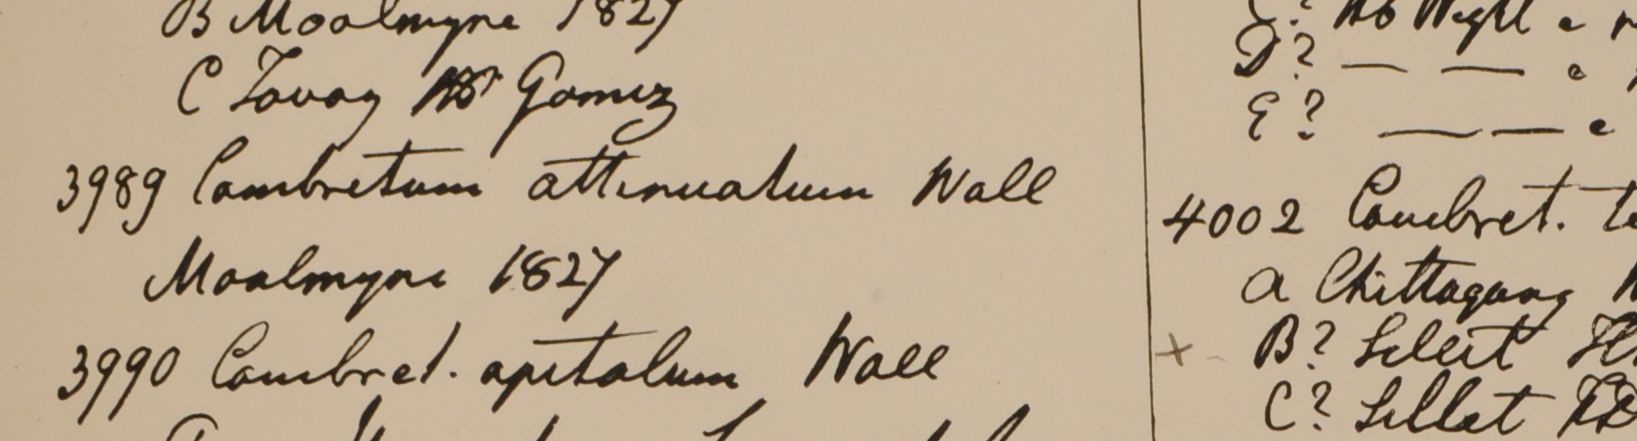 B Moalmyne 1827
C Tavoy HB Gomez
3989 Combretum attenuatum Wall
Moalmyne 1827
3990 Combret. apetalum Wall
C? HB Wight e
D? — — e
E? — — e
4002 Combret.
a Chittagong
+ B? Sillet
C? Sillet